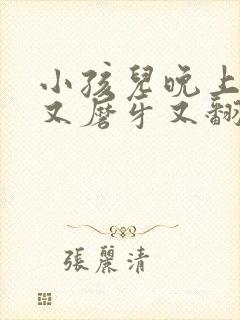 小孩兒晚上
又磨牙又翻
張麗清